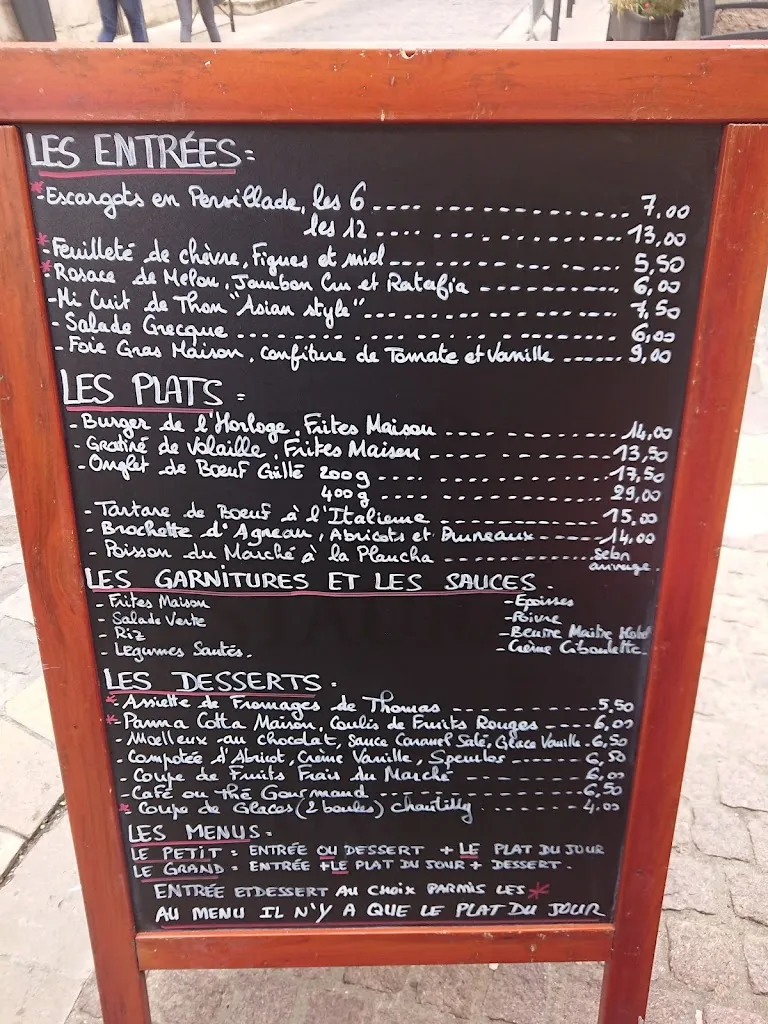 LES ENTRÉES :
* - Escargots en Persillade, les 6 .... 7,00
les 12 .... 13,00
* - Feuilleté de chèvre, Figues et miel .... 5,50
* - Rosace de Melon, Jambon Cru et Ratafia .... 6,00
- Mi Cuit de Thon "Asian style" .... 7,50
- Salade Grecque .... 6,00
- Foie Gras Maison, confiture de Tomate et Vanille .... 9,00
LES PLATS :
- Burger de l'Horloge, Frites Maison .... 14,00
- Gratiné de Volaille, Frites Maison .... 13,50
- Onglet de Boeuf Grillé 200g .... 17,50
400g .... 29,00
- Tartare de Boeuf à l'Italienne .... 15,00
- Brochette d'Agneau, Abricots et Pruneaux .... 14,00
- Poisson du Marché à la Plancha .... selon
arrivage.
LES GARNITURES ET LES SAUCES.
- Frites Maison - Epoisses
- Salade Verte - Poivre
- Riz - Beurre Maitre Hotel
- Légumes Sautés. - Crème Ciboulette.
LES DESSERTS.
* - Assiette de Fromages de Thomas .... 5,50
* - Panna Cotta Maison, Coulis de Fruits Rouges .... 6,00
- Moelleux au Chocolat, Sauce Caramel Salé, Glace Vanille - 6,50
- Compotée d'Abricot, Crème Vanille, Speculos .... 6,50
- Coupe de Fruits Frais du Marché .... 6,00
- Café ou Thé Gourmand .... 6,50
* - Coupe de Glaces (2 boules) chantilly .... 4,00
LES MENUS :
LE PETIT : ENTRÉE OU DESSERT + LE PLAT DU JOUR
LE GRAND : ENTRÉE + LE PLAT DU JOUR + DESSERT.
ENTRÉE ET DESSERT AU CHOIX PARMIS LES *
AU MENU IL N'Y A QUE LE PLAT DU JOUR